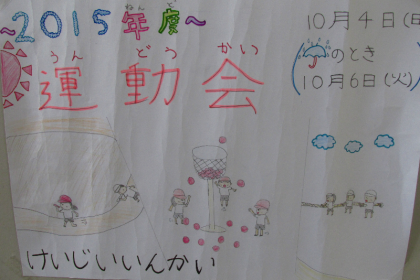 ~2015年度~
ねんど
10月4日(日
うんどうかい
運動会
(☂のとき
10月6日(火)
けいじいいんかい